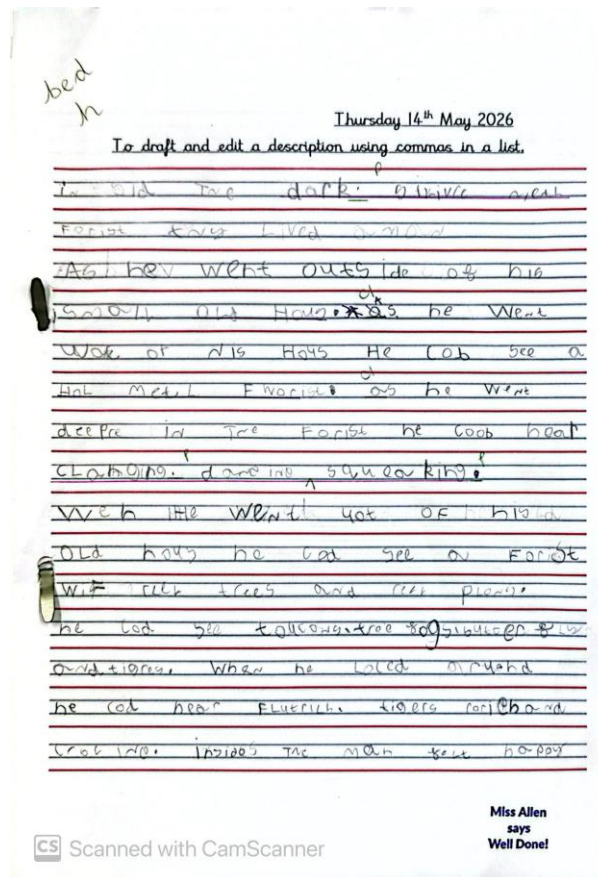 bed
h
Thursday 14th May 2026
To draft and edit a description using commas in a list.
in old The dark. metal
Forist they Lived a man
As hey went outside of his
small old Hous. as he went
Wok of his Hoys He cob see a
Hol Metel Forist. as he went
deepre in The Forist he coob hear
CLanging. dancing squeaking.
Weh He went yot OF his
OLd hoys he cod see a Forist
Wif reel trees and reel plans.
he cod see toucans. tree fogs
and tigres. When he looked around
he cod hear FLutrich. tigers and
inside The Man felt happy
Miss Allen
says
Well Done!
CS Scanned with CamScanner